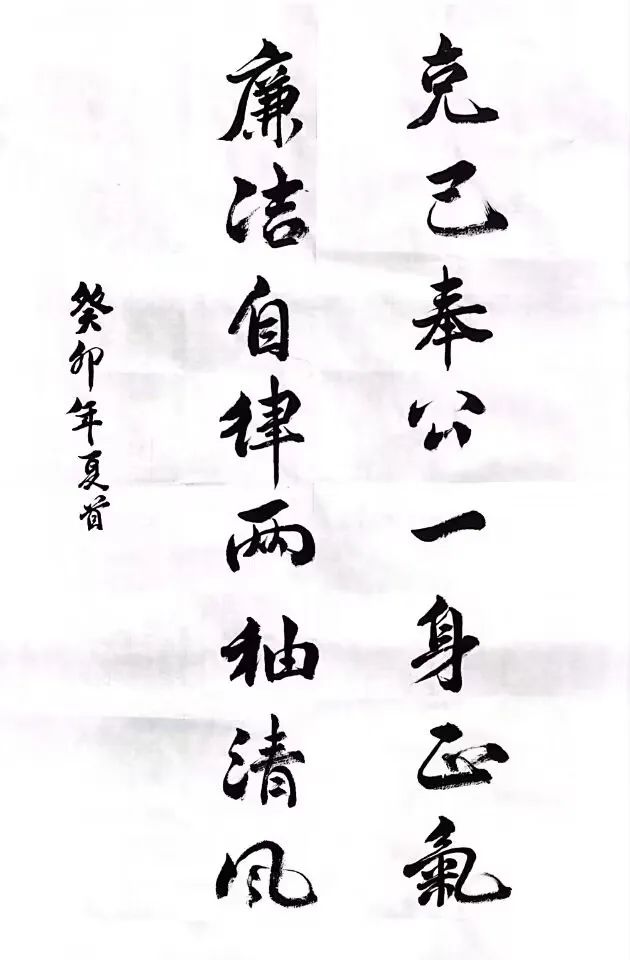 克己奉公一身正氣
廉洁自律两袖清风
癸卯年夏首